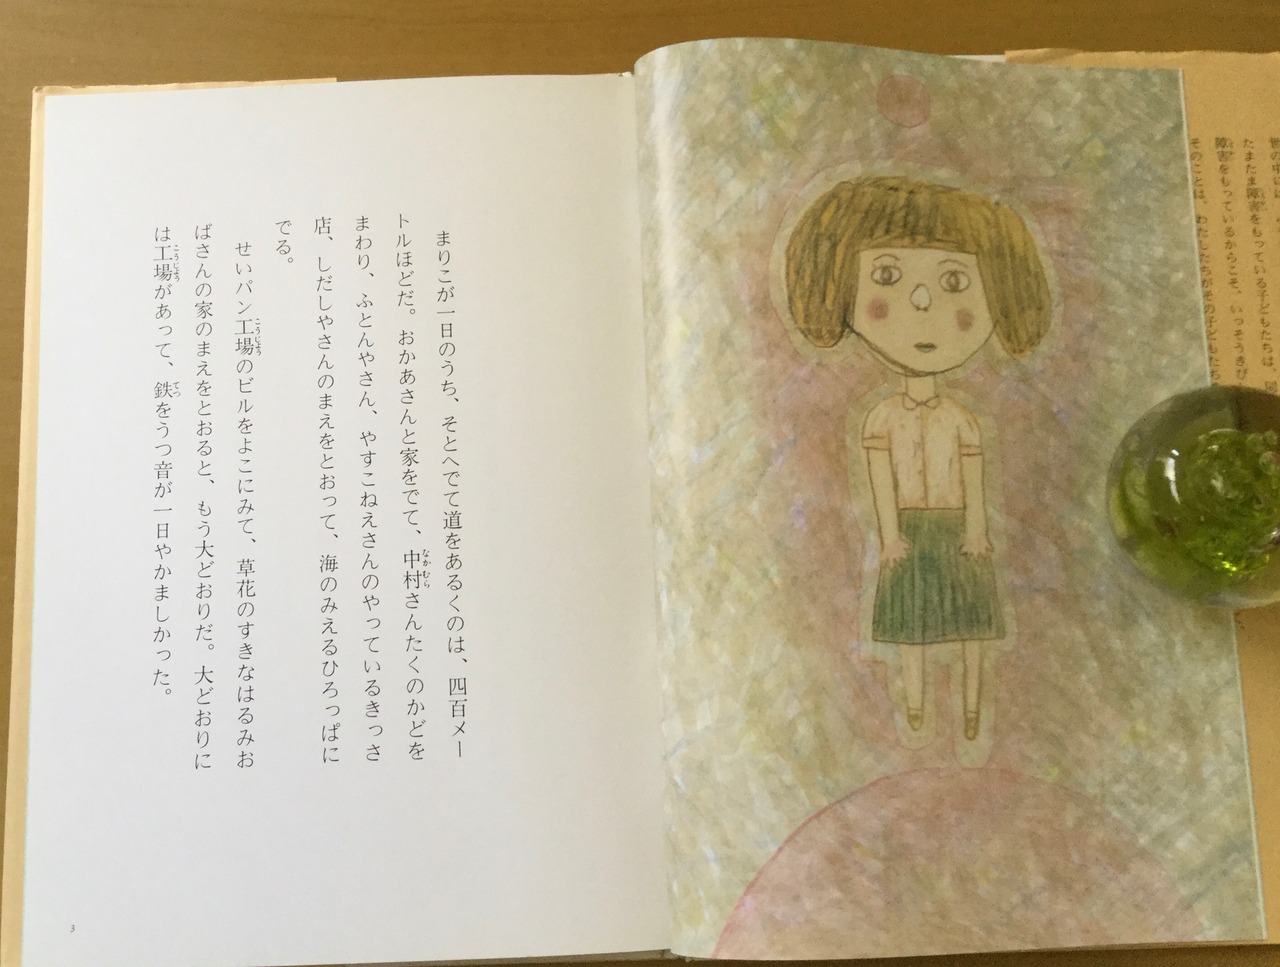 世の中には、
たまたま障害をもっている子どもたちは、
障害をもっているからこそ、いっそうきび
そのことは、わたしたちがその子どもたち
まりこが一日のうち、そとへでて道をあるくのは、四百メー
トルほどだ。おかあさんと家をでて、中村さんたくのかどを
まわり、ふとんやさん、やすこねえさんのやっているきっさ
店、しだしやさんのまえをとおって、海のみえるひろっぱに
でる。
せいパン工場のビルをよこにみて、草花のすきなはるみお
ばさんの家のまえをとおると、もう大どおりだ。大どおりに
は工場があって、鉄をうつ音が一日やかましかった。
3